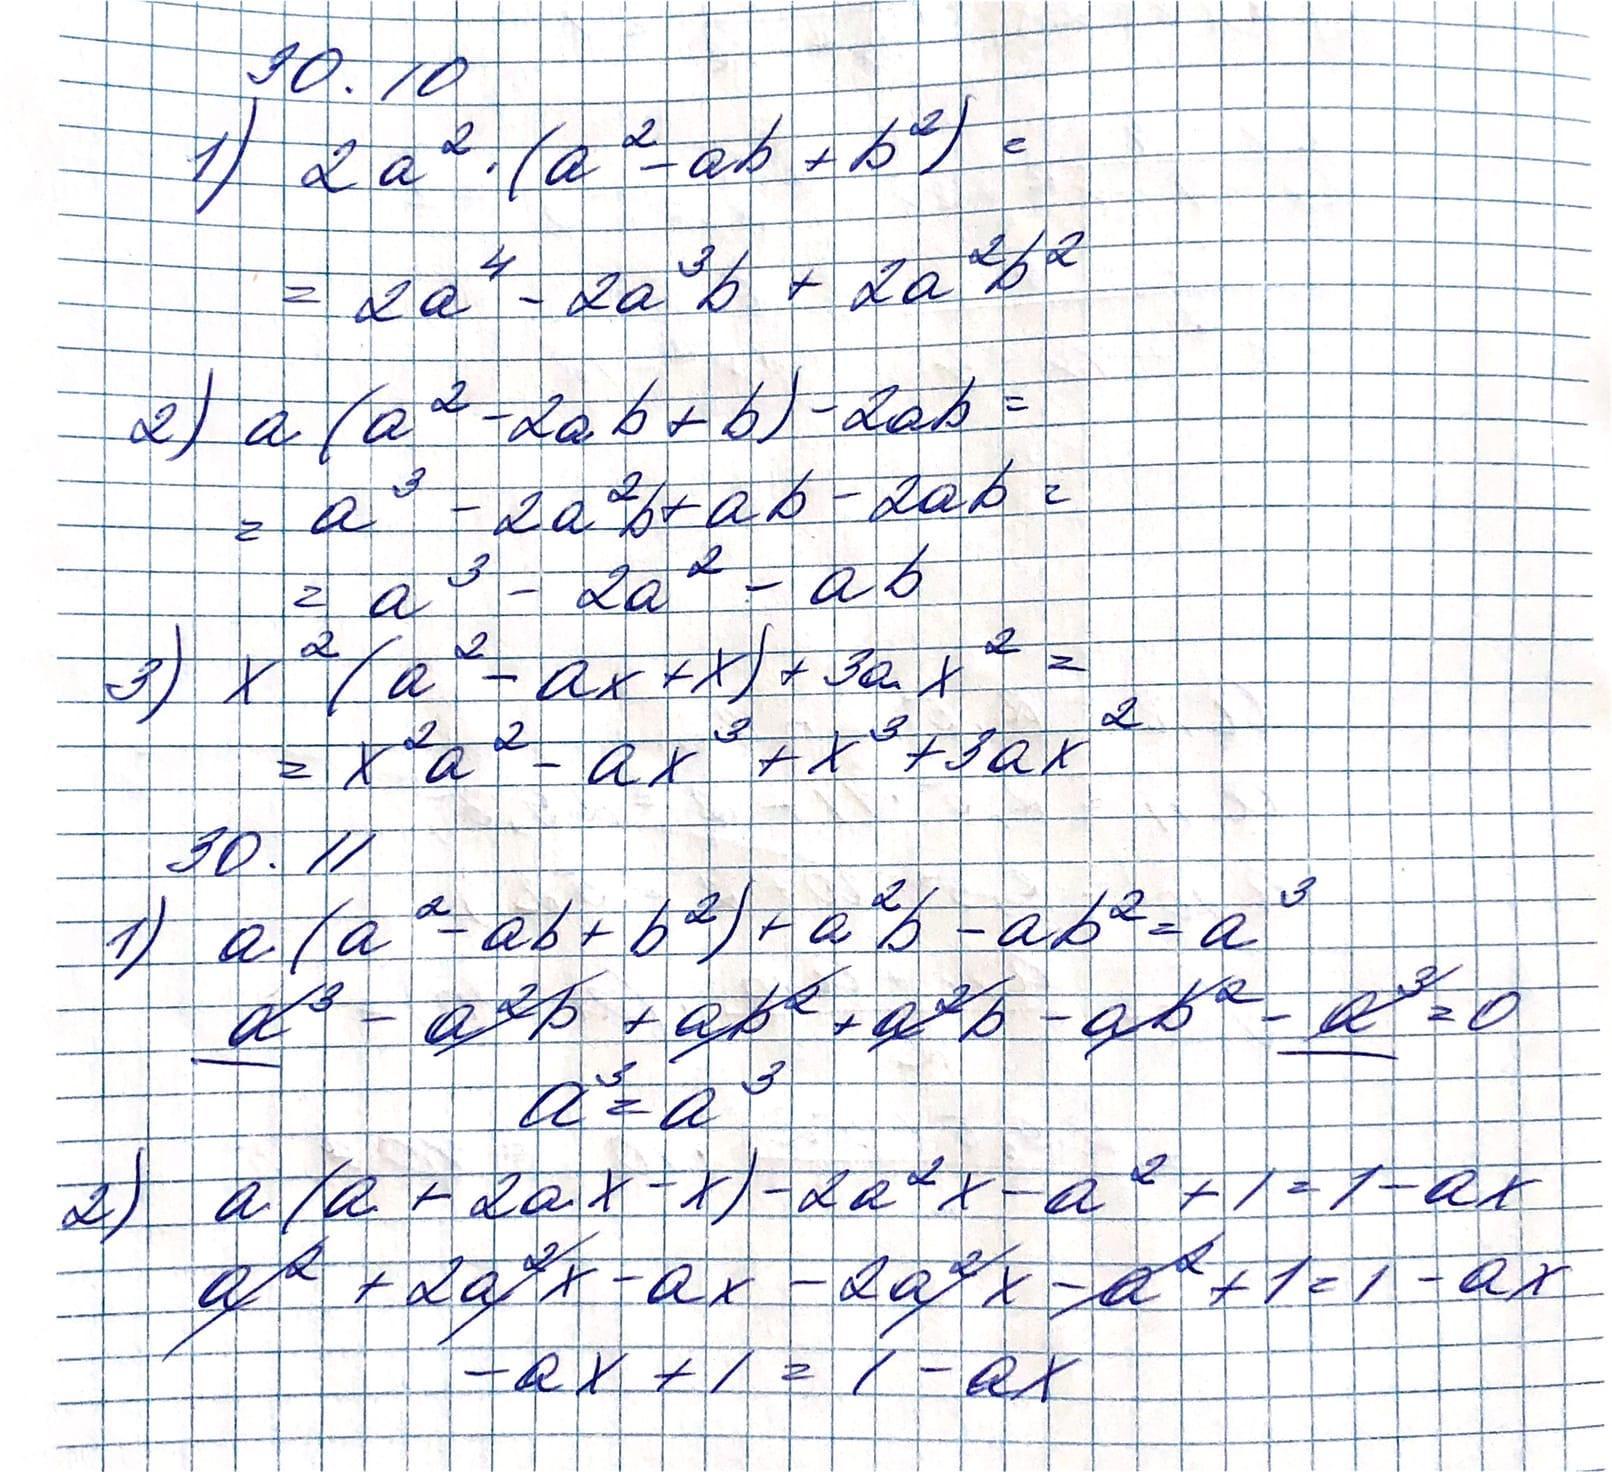 30.10
1) 2a² · (a² - ab + b²) =
= 2a⁴ - 2a³b + 2a²b²
2) a (a² - 2ab + b) - 2ab =
= a³ - 2a²b + ab - 2ab =
= a³ - 2a² - ab
3) x² (a² - ax + x) + 3ax² =
= x²a² - ax³ + x³ + 3ax²
30.11
1) a (a² - ab + b²) + a²b - ab² = a³
a³ - a²b + ab² + a²b - ab² - a³ = 0
a³ = a³
2) a (a + 2ax - x) - 2a²x - a² + 1 = 1 - ax
a² + 2a²x - ax - 2a²x - a² + 1 = 1 - ax
-ax + 1 = 1 - ax